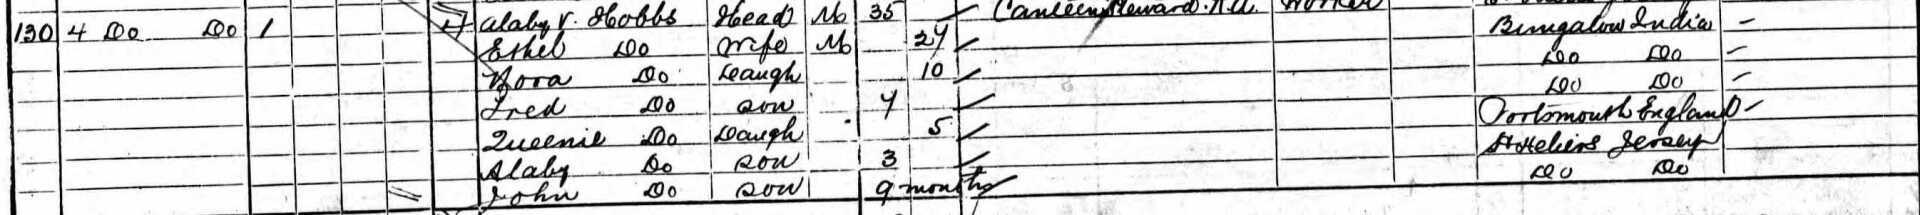 130 4 Do Do 1 Alaby V. Hobbs Head M 35 Canteen Steward. Worker
Ethel Do Wife M 27 Bungalow India
Nora Do Daugh 10 Do Do
Fred Do Son 7 Do Do
Queenie Do Daugh 5 Portsmouth England
Alaby Do Son 3 St Heliers Jersey
John Do Son 9 months Do Do